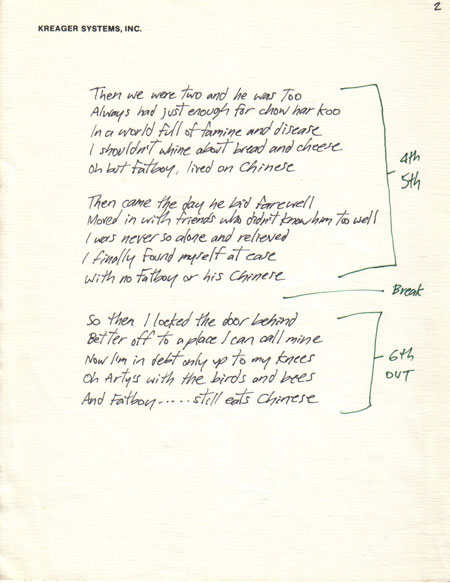 2
KREAGER SYSTEMS, INC.
Then we were two and he was too
Always had just enough for chow har koo
In a world full of famine and disease
I shouldn't whine about bread and cheese
Oh but Fatboy, lived on Chinese
4th
5th
Then came the day he bid farewell
Moved in with friends who didn't know him too well
I was never so alone and relieved
I finally found myself at ease
With no Fatboy or his Chinese
Break
So then I locked the door behind
Better off to a place I can call mine
Now I'm in debt only up to my knees
Oh Arty's with the birds and bees
And Fatboy.....still eats Chinese
6th
OUT